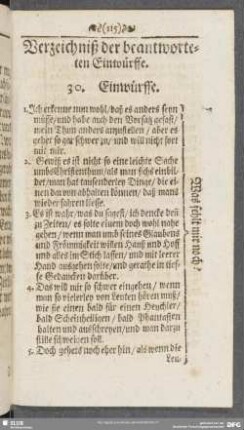 (115)
Verzeichniß der beantworte-
ten Einwürffe.
30. Einwürffe.
1. Ich erkenne nun wohl/ daß es anders seyn
müsse/ und habe auch den Vorsatz gefast/
mein Thun anders anzustellen/ aber es
gehet so gar schwer zu/ und will nicht fort
mit mir.
2. Gewiß es ist nicht so eine leichte Sache
ums Christenthum/ als man sichs einbil-
det/ man hat tausenderley Dinge/ die ei-
nen davon abhalten können/ daß mans
wieder fahren liesse.
3. Es ist wahr/ was du sagest/ ich dencke deß
zu Zeiten/ es solte einem doch wohl nahe
gehen/ wenn man um seines Glaubens
und Frömmigkeit willen Hauß und Hoff
und alles im Stich lassen/ und mit leerer
Hand ausgehen solte/ und gerathe in tief-
fe Gedancken darüber.
4. Das will mir so schwer eingehen/ wenn
man so vielerley von Leuten hören muß/
wie sie einen bald für einen Heuchler/
bald Scheinheiligen/ bald Phantasten
halten und ausschreyen/ und man darzu
stille schweigen soll.
5. Doch gehets noch eher hin/ als wenn die
Leu-
Was fehlt mir noch?